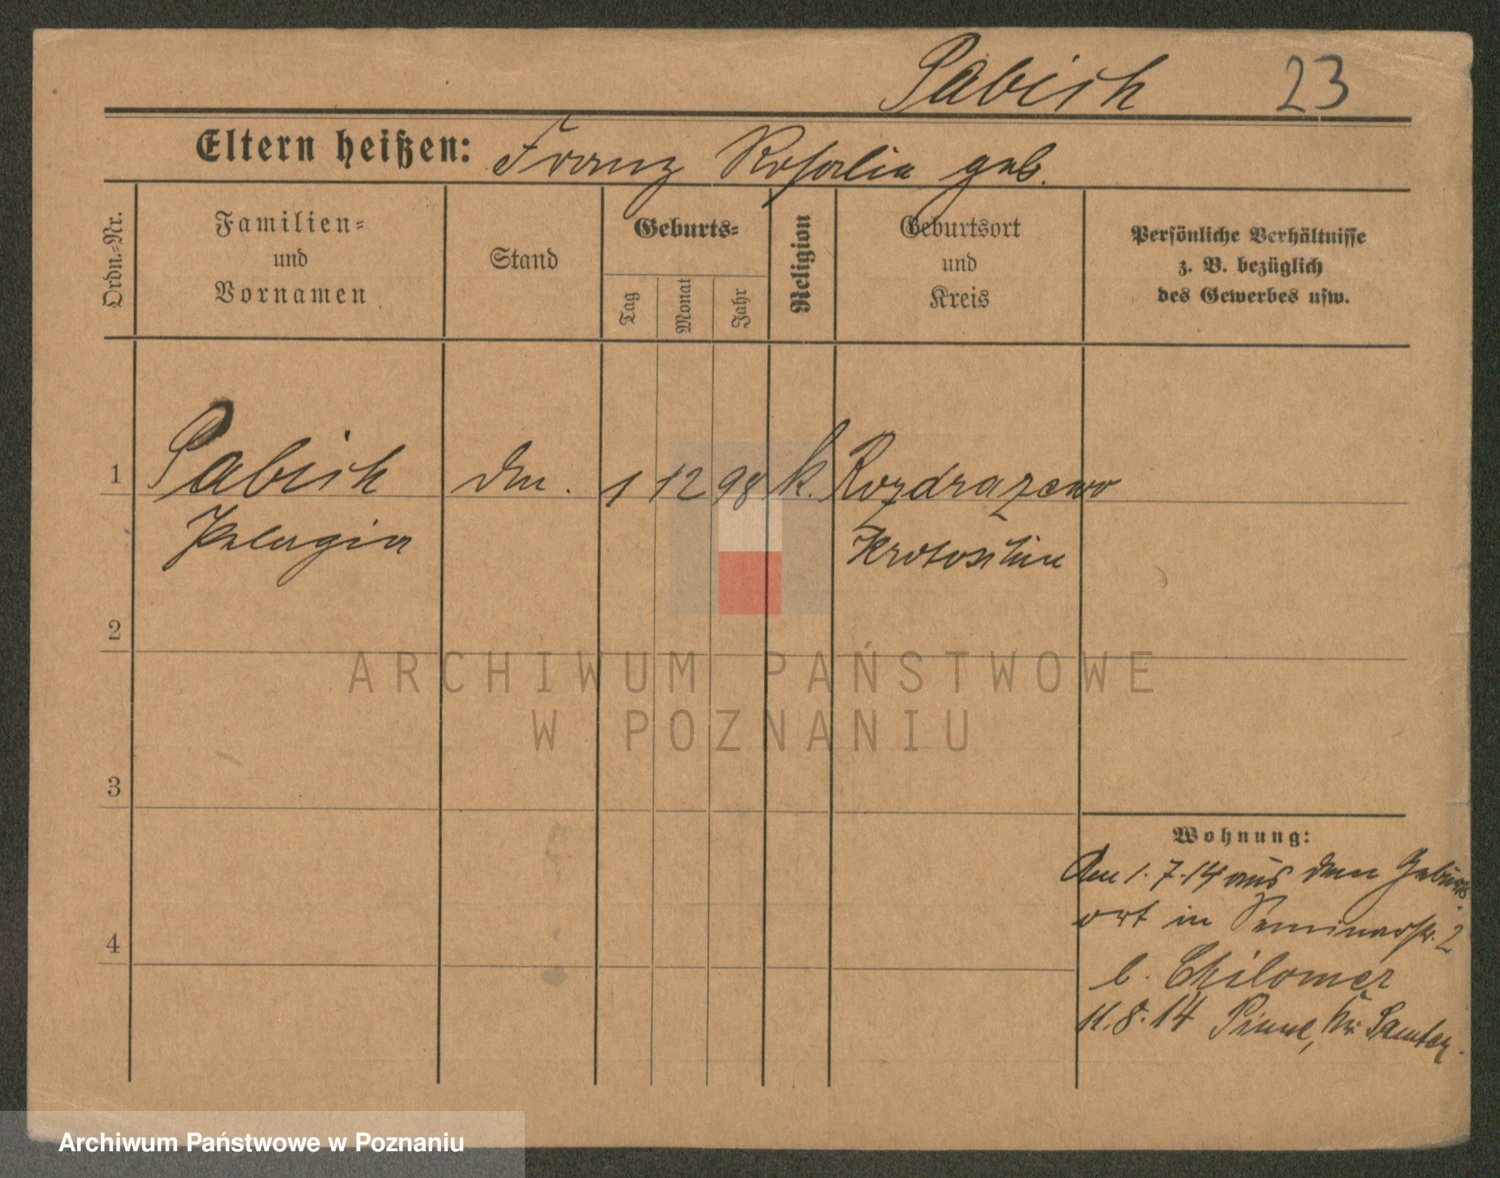 Pabich 23
Eltern heißen: Franz Rosalia geb.
Ordn.-Nr.
Familien-
und
Vornamen
Stand
Geburts-
Tag
Monat
Jahr
Religion
Geburtsort
und
Kreis
Persönliche Verhältnisse
z. B. bezüglich
des Gewerbes usw.
1 Pabich 1 12 98 k. Rozdrazewo
Pelagia Krotoschin
2
3
4
Wohnung:
Am 1.7.14 aus dem Geburts-
ort in Seminarstr. 2
b. Chilomer
11.8.14 Pinne, Kr. Samter.
ARCHIWUM PAŃSTWOWE
W POZNANIU
Archiwum Państwowe w Poznaniu